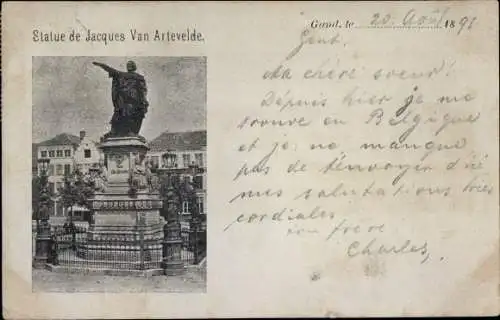 Statue de Jacques Van Artevelde.
Gand, le 20 Août 1898
Gent.
Ma chère soeur!
Depuis hier je me
trouve en Belgique
et je ne manque
pas de t'envoyer d'ici
mes salutations très
cordiales
ton frère
Charles,